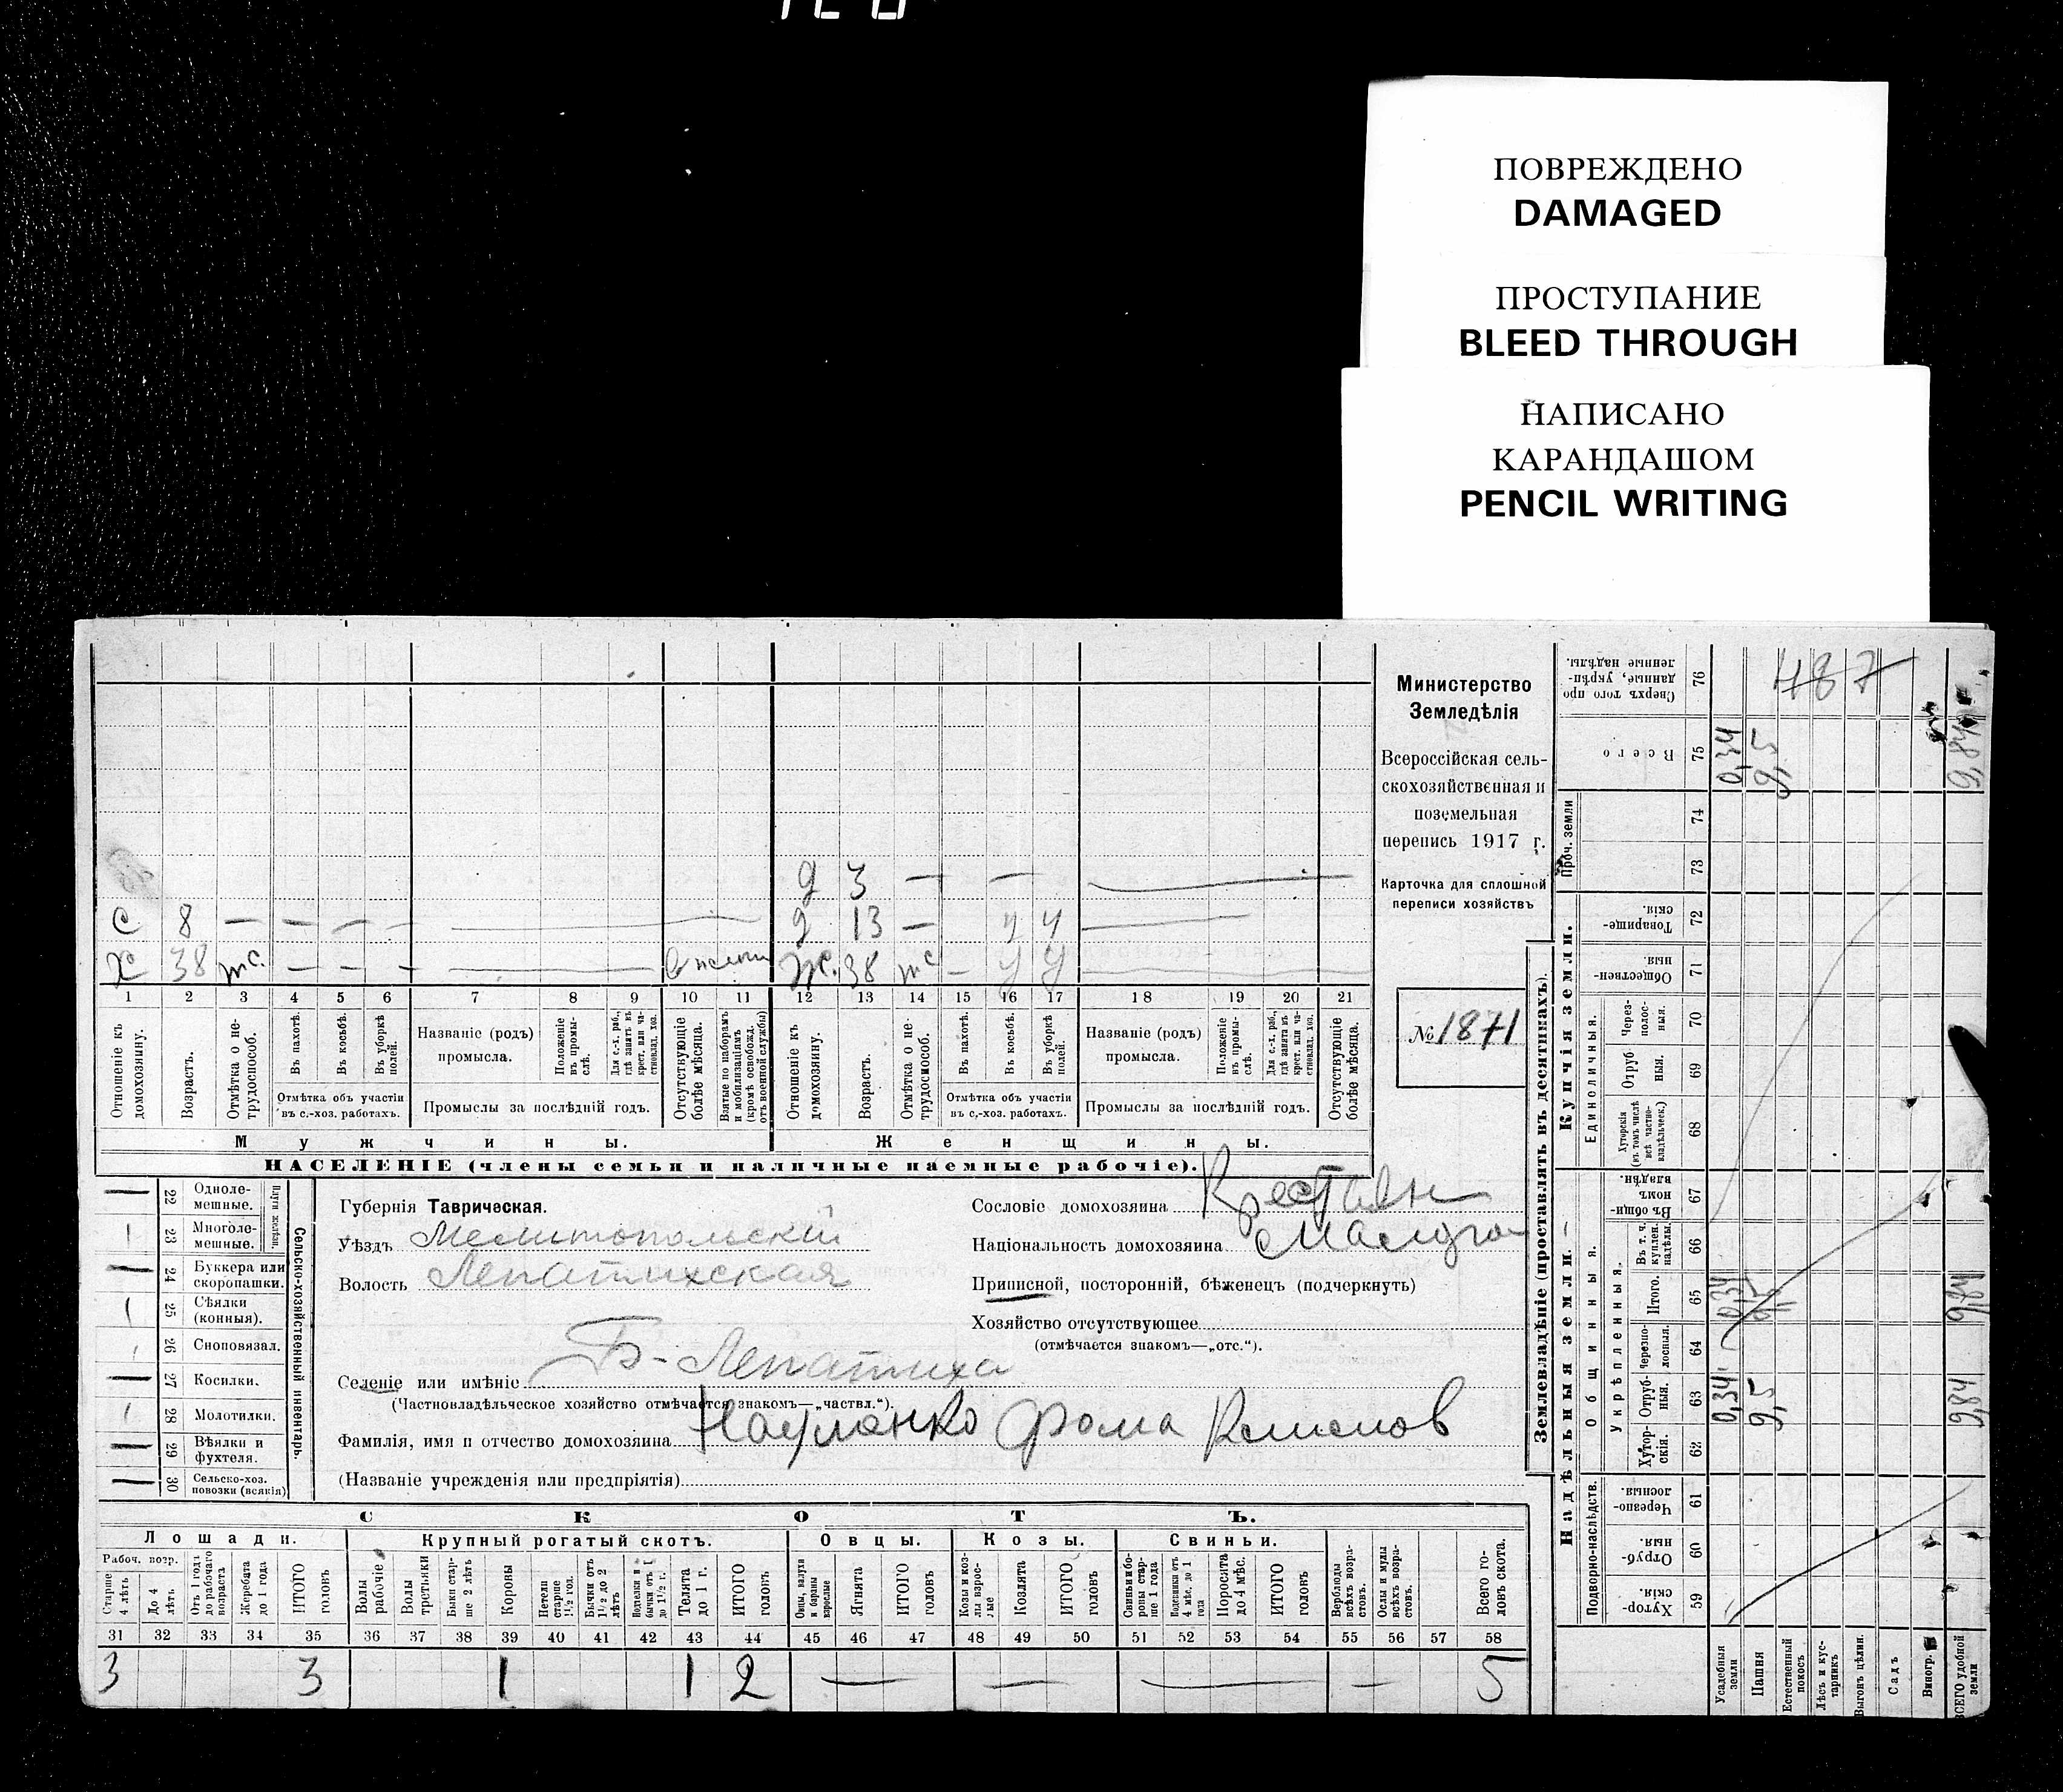 ПОВРЕЖДЕНО
DAMAGED
ПРОСТУПАНИЕ
BLEED THROUGH
НАПИСАНО
КАРАНДАШОМ
PENCIL WRITING
Министерство
Земледѣлія
Всероссійская сель-
скохозяйственная и
поземельная
перепись 1917 г.
Карточка для сплошной
переписи хозяйствъ
№ 1871
д 3 — —
с 8 — — — — д 13 — у у
х 38 — — — ж. 38 — у у
1 2 3 4 5 6 7 8 9 10 11 12 13 14 15 16 17 18 19 20 21
Отношеніе къ домохозяину.
Возрастъ.
Отмѣтка о не-трудоспособ.
Въ пахотѣ.
Въ косьбѣ.
Въ уборкѣ полей.
Отмѣтка объ участіи
въ с.-хоз. работахъ.
Названіе (родъ)
промысла.
Положеніе въ промы-слѣ.
Для с.-х. раб., гдѣ занятъ въ крест. или ча-стновлад. хоз.
Промыслы за послѣдній годъ.
Отсутствующіе болѣе мѣсяца.
Взятые по наборамъ и мобилизаціямъ (кромѣ освобожд. отъ военной службы)
Отношеніе къ домохозяину.
Возрастъ.
Отмѣтка о не-трудоспособ.
Въ пахотѣ.
Въ косьбѣ.
Въ уборкѣ полей.
Отмѣтка объ участіи
въ с.-хоз. работахъ.
Названіе (родъ)
промысла.
Положеніе въ промы-слѣ.
Для с.-х. раб., гдѣ занятъ въ крест. или ча-стновлад. хоз.
Промыслы за послѣдній годъ.
Отсутствующіе болѣе мѣсяца.
Мужчины. Женщины.
НАСЕЛЕНІЕ (члены семьи и наличные наемные рабочіе).
Сельско-хозяйственный инвентарь.
Плуги желѣзн.
22 Одноле-мешные.
23 Многоле-мешные.
24 Буккера или скоропашки.
25 Сѣялки (конныя).
26 Сноповязал.
27 Косилки.
28 Молотилки.
29 Вѣялки и фухтеля.
30 Сельско-хоз. повозки (всякія)
Губернія Таврическая.
Уѣздъ Мелитопольскій
Волость Лепатихская
Селеніе или имѣніе Б-Лепатиха
(Частновладѣльческое хозяйство отмѣчается знакомъ—„частвл.“).
Фамилія, имя и отчество домохозяина Фома
(Названіе учрежденія или предпріятія)
Сословіе домохозяина Крестьян
Національность домохозяина Малоро
Приписной, посторонній, бѣженецъ (подчеркнуть)
Хозяйство отсутствующее
(отмѣчается знакомъ—„отс.“).
СКОТЪ.
Лошади. Крупный рогатый скотъ. Овцы. Козы. Свиньи.
Рабоч. возр.
Старше 4 лѣтъ
До 4 лѣтъ.
Отъ 1 года до рабочаго возраста
Жеребята до 1 года
ИТОГО головъ
Волы рабочіе
Волы третьяки
Быки стар-ше 2 лѣтъ
Коровы
Нетели старше 1½ год.
Бычки отъ 1½ до 2 лѣтъ
Телята до 1 г.
ИТОГО головъ
Овцы, валухи и бараны взрослые
Ягнята
ИТОГО головъ
Козы и коз-лы взрос-лые
Козлята
ИТОГО головъ
Свиньи и бо-ровы стар-ше 1 года
Подсвинки отъ 4 мѣс. до 1 года
Поросята до 4 мѣс.
ИТОГО головъ
Верблюды всѣхъ возра-стовъ.
Ослы и мулы всѣхъ возра-стовъ.
Всего го-ловъ скота.
31 32 33 34 35 36 37 38 39 40 41 42 43 44 45 46 47 48 49 50 51 52 53 54 55 56 57 58
3 3 1 1 2 — — — — 5
Землевладѣніе (проставлять въ десятинахъ).
Надѣльныя земли.
Купчія земли.
Проч. земли
Подворно-наслѣдств.
Общинныя.
Укрѣпленныя.
Единоличныя.
Хутор-скія. 59
Отруб-ныя 60
Черезпо-лосныя. 61
Хутор-скія. 62
Отруб-ныя. 63
Черезпо-лосныя. 64
Итого. 65
Въ т. ч. куплен. надѣлы. 66
Въ общи-номъ владѣн. 67
Хуторскія (въ томъ числѣ всѣ частно-владѣльческ.) 68
Отруб ныя. 69
Через-полос-ныя. 70
Обществен-ныя 71
Товарище-скія. 72
73
74
Всего 75
Сверхъ того про данные, укрѣп-ленные надѣлы. 76
Усадебныя земли
Пашня
Естественный покосъ
Лѣсъ и кус-тарникъ
Выгонъ цѣлин.
Садъ
Виногр.
ВСЕГО удобной земли
0,34 9,5 9,84
0,34 9,5 9,84
0,34 9,5 9,84
487